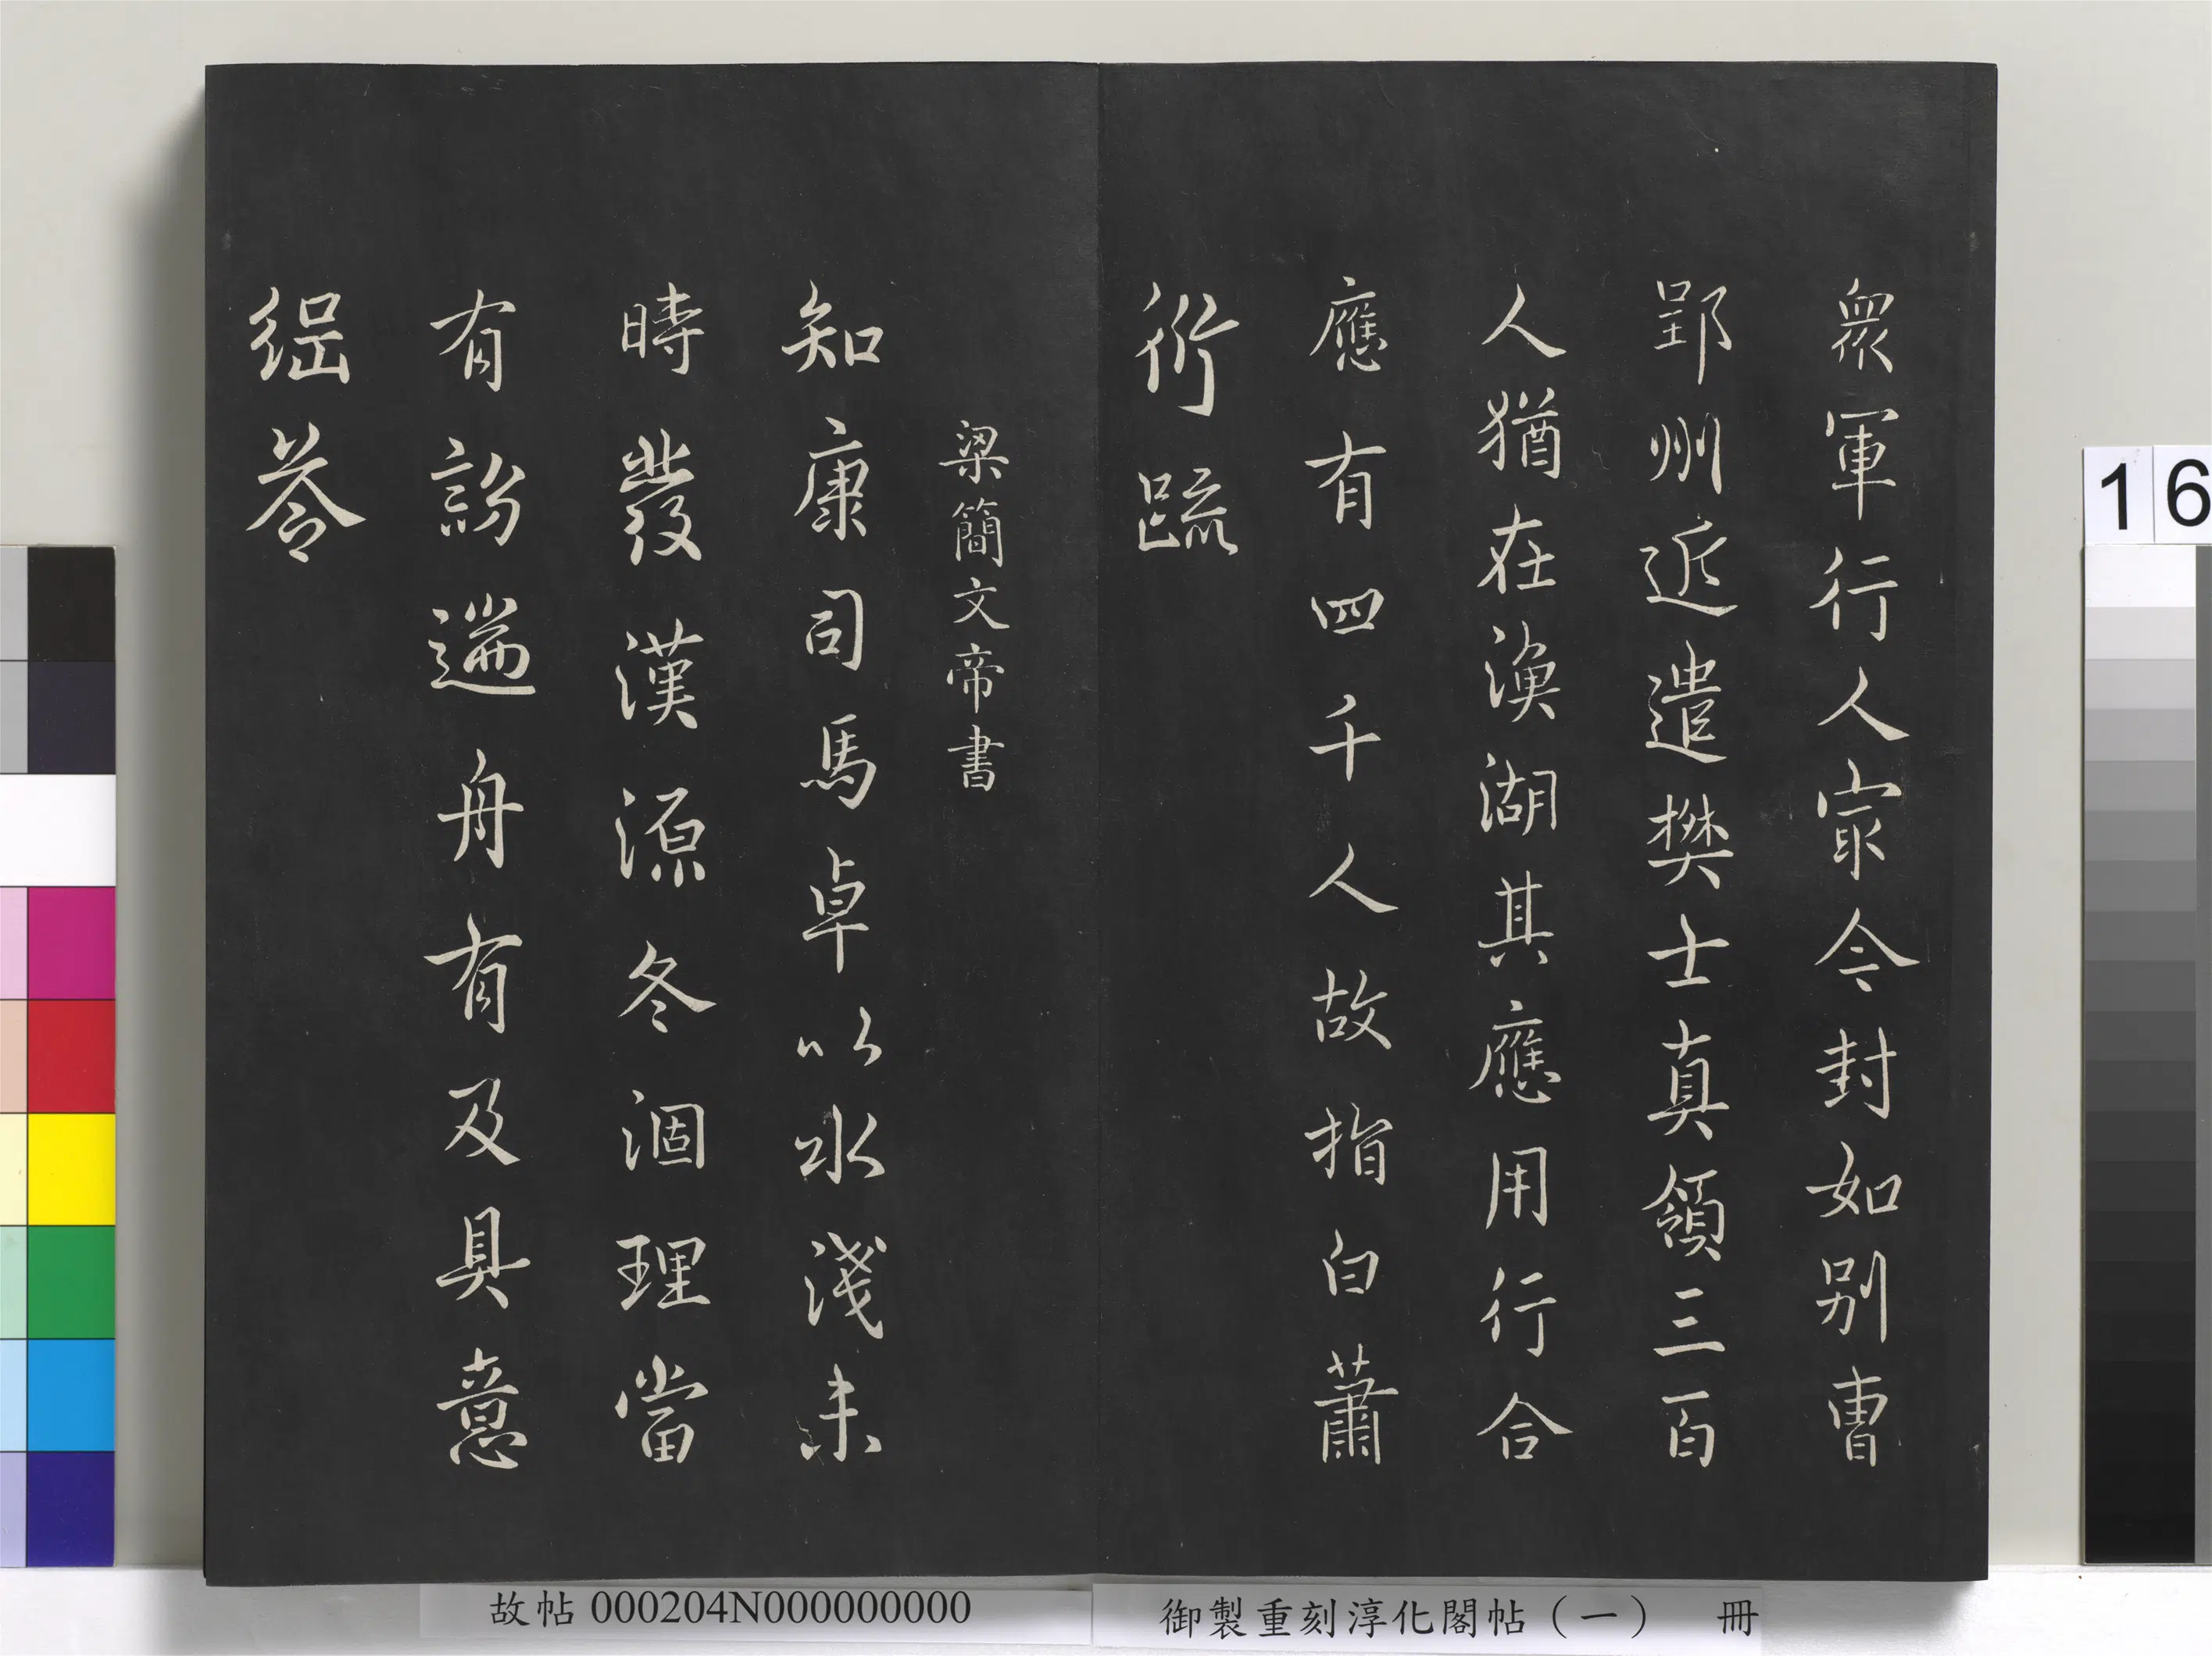 眾軍行人家令封如别曹
郢州近遣樊士真領三百
人猶在漁湖其應用行合
應有四千人故指白蕭
衍疏
梁簡文帝書
知康司馬卓以水淺未
時發漢源冬涸理當
有訪遄舟有及具意
綎答
故帖 000204N000000000
御製重刻淳化閣帖（一） 冊
16